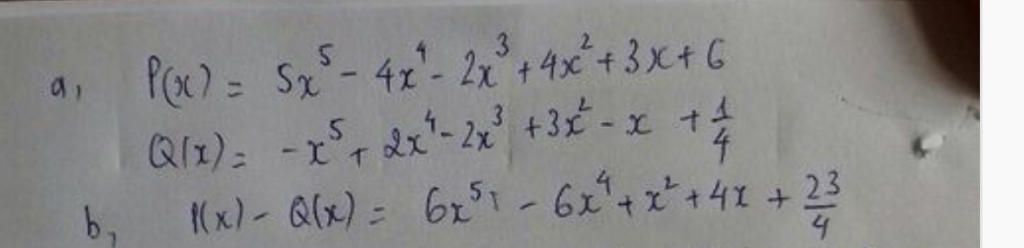 a, P(x) = 5x⁵ - 4x⁴ - 2x³ + 4x² + 3x + 6
Q(x) = -x⁵ + 2x⁴ - 2x³ + 3x² - x + 1/4
b, P(x) - Q(x) = 6x⁵ - 6x⁴ + x² + 4x + 23/4